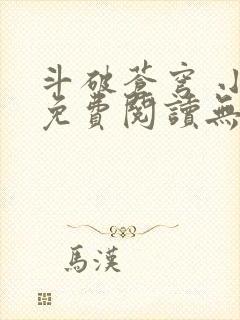 斗破蒼穹 小
免費閱讀無
馬漢